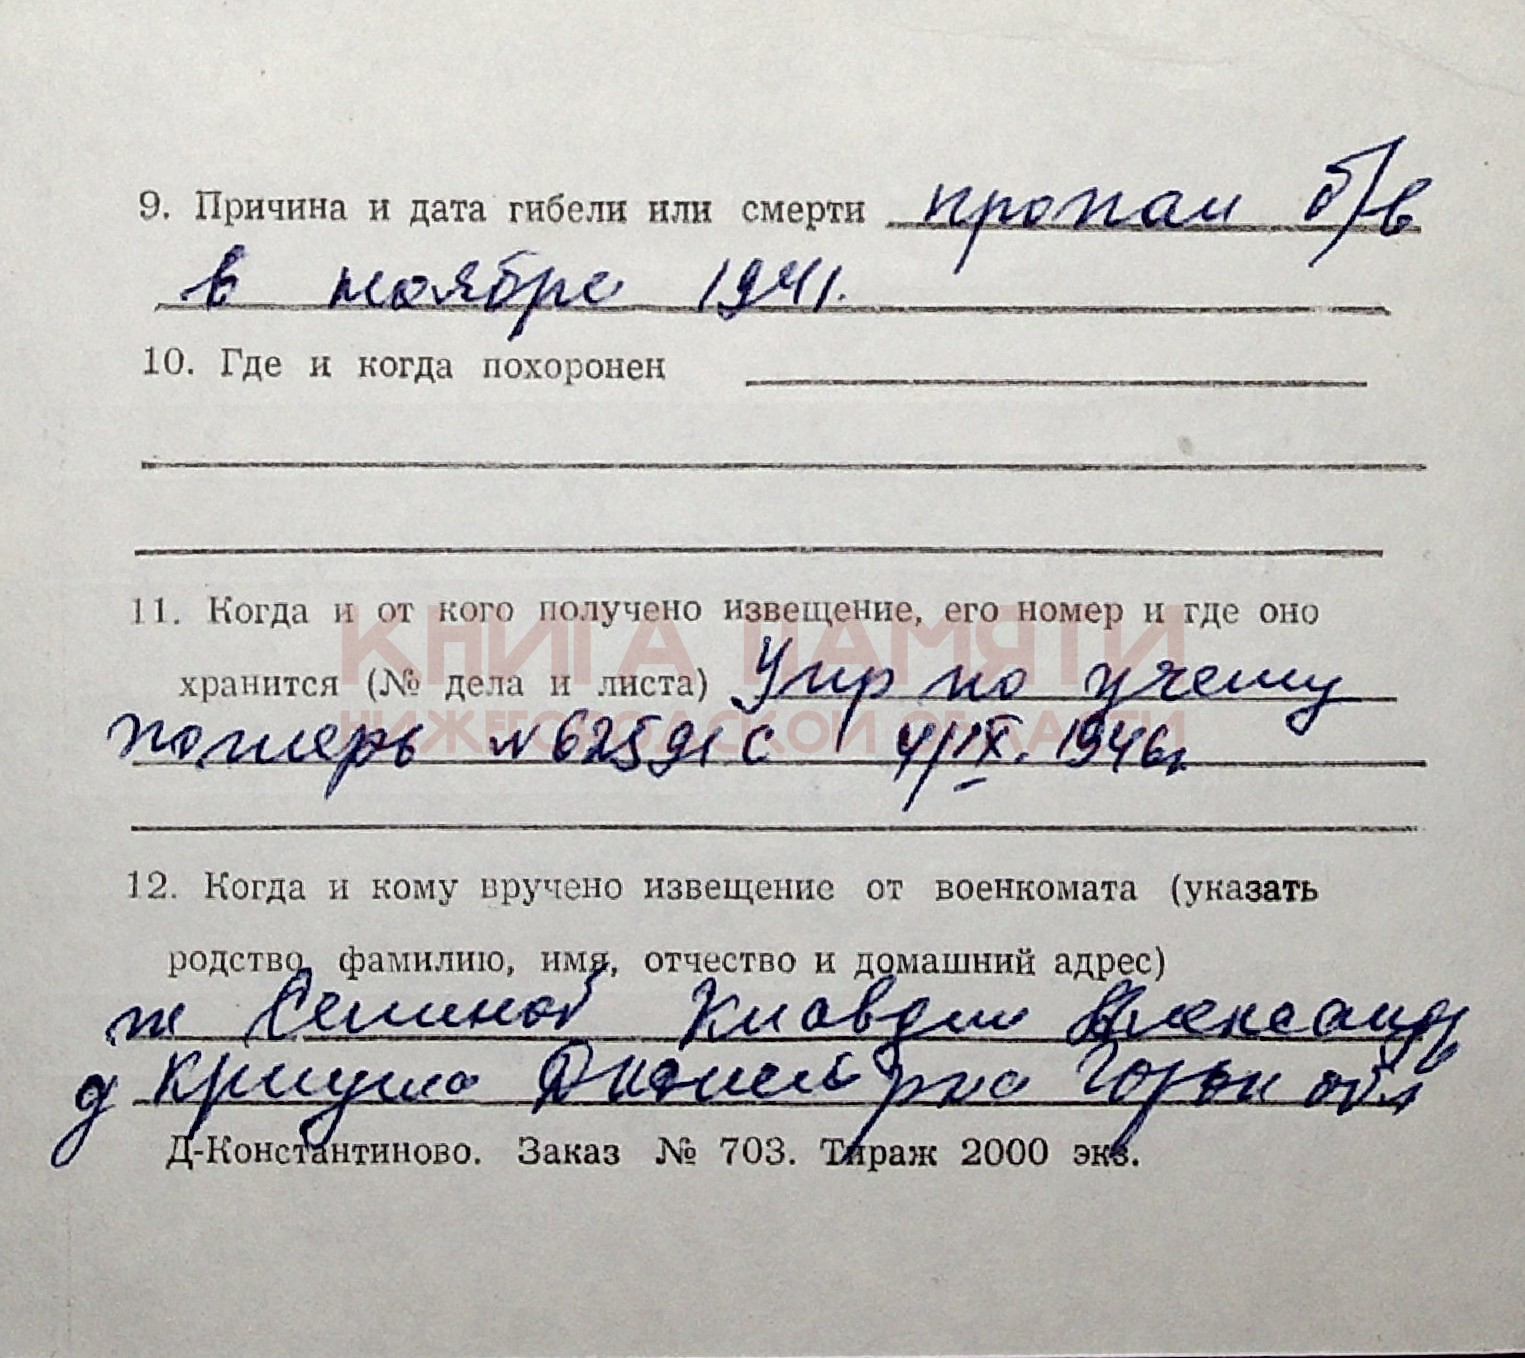 9. Причина и дата гибели или смерти пропал б/в
в ноябре 1941.
10. Где и когда похоронен
11. Когда и от кого получено извещение, его номер и где оно
КНИГА ПАМЯТИ
хранится (№ дела и листа) Упр по учету
НИЖЕГОРОДСКОЙ ОБЛАСТИ
потерь № 62591с 4/IX. 1946г
12. Когда и кому вручено извещение от военкомата (указать
родство, фамилию, имя, отчество и домашний адрес)
ж Семиной Клавдии Александр
д Криуша Горьк обл
Д-Константиново. Заказ № 703. Тираж 2000 экз.